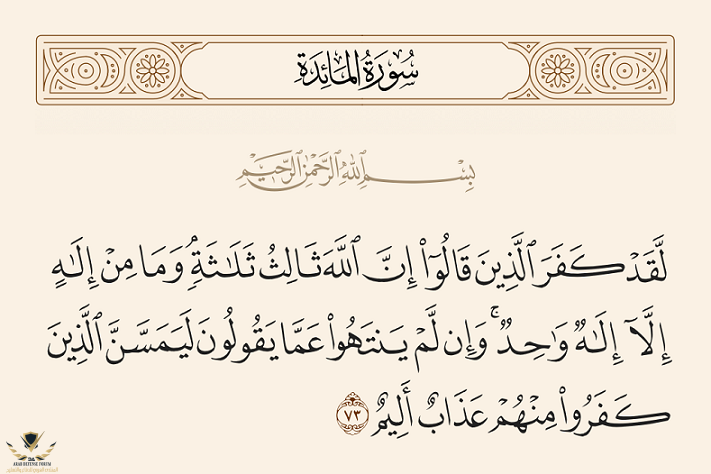 سُورَةُ المَائِدَةِ
بِسْمِ ٱللَّهِ ٱلرَّحْمَٰنِ ٱلرَّحِيمِ
لَّقَدْ كَفَرَ ٱلَّذِينَ قَالُوٓا۟ إِنَّ ٱللَّهَ ثَالِثُ ثَلَٰثَةٍۘ وَمَا مِنْ إِلَٰهٍ
إِلَّآ إِلَٰهٌ وَٰحِدٌۚ وَإِن لَّمْ يَنتَهُوا۟ عَمَّا يَقُولُونَ لَيَمَسَّنَّ ٱلَّذِينَ
كَفَرُوا۟ مِنْهُمْ عَذَابٌ أَلِيمٌ ٧٣
ARAB DEFENSE FORUM